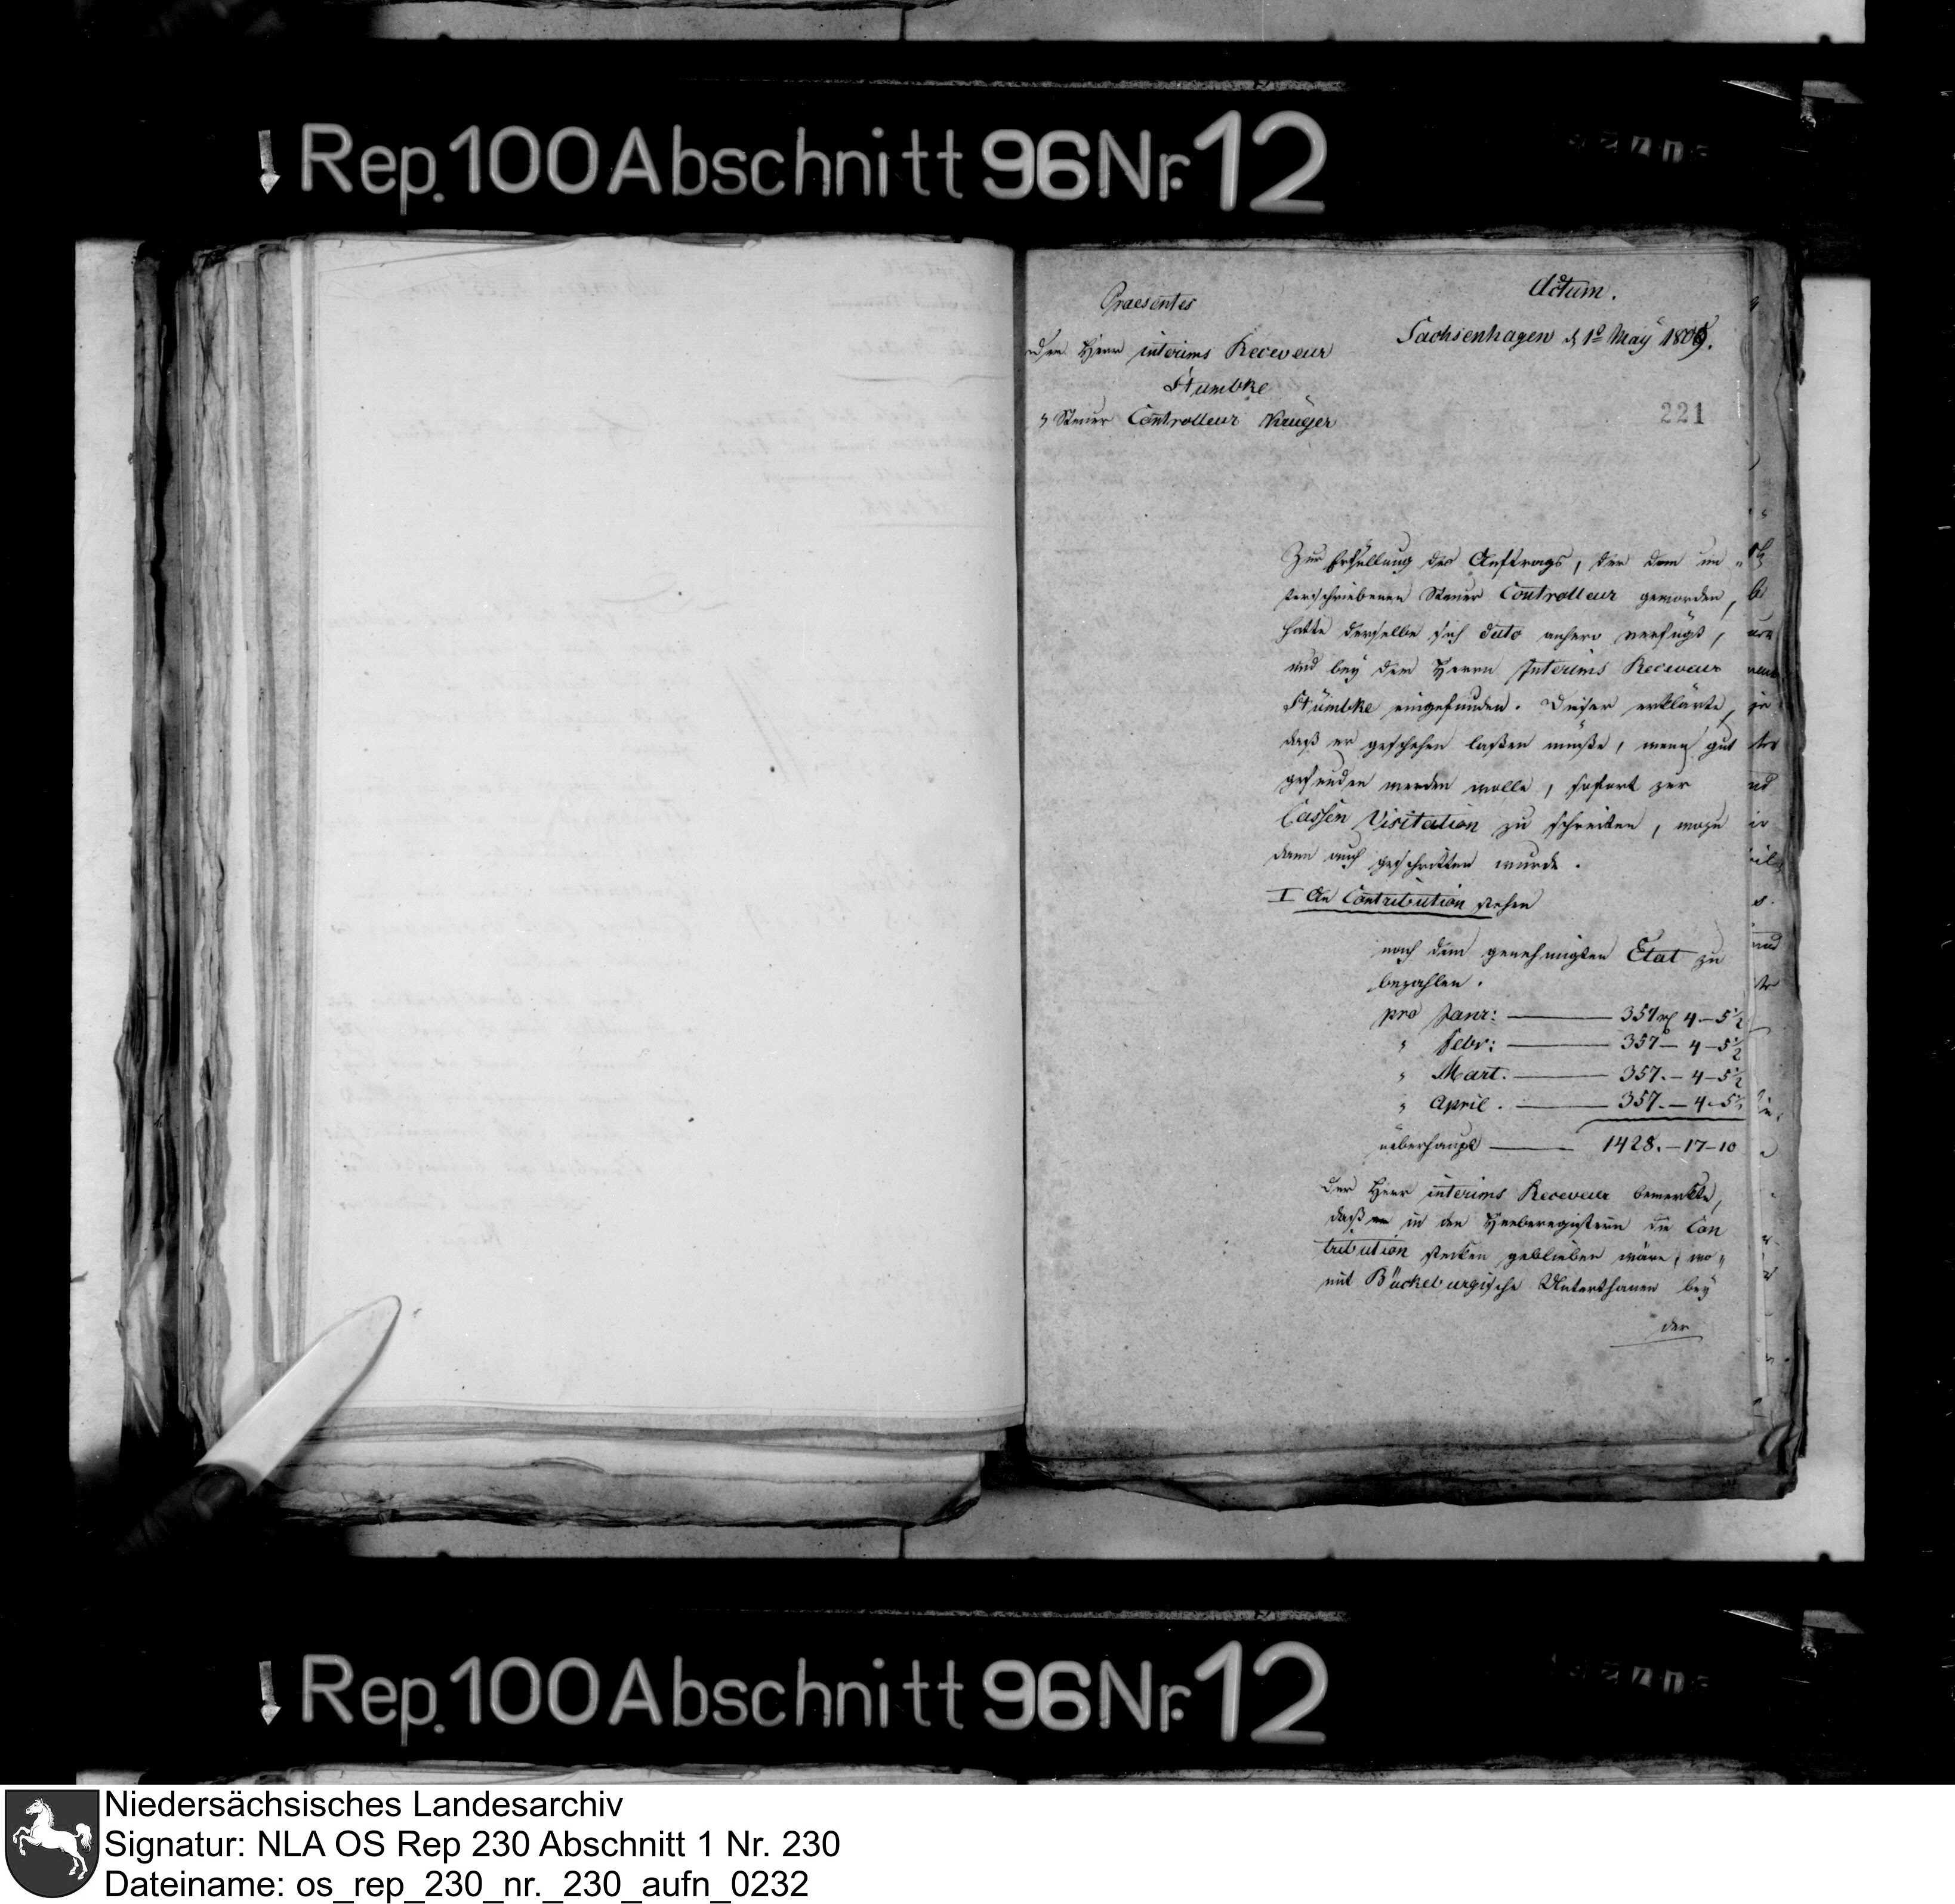 Rep. 100 Abschnitt 96 Nr. 12
Actum.
Praesentes
Sachsenhagen d 1t May 1809.
den Herr interims Receveur
Stümbke
" Steuer Controlleur Krüger
221
Zur Erfüllung des Auftrags, der dem un„
terschriebenen Steuer Controlleur geworden,
hatte derselbe sich dato anhero verfügt,
und bey dem Herrn Interims Receveur
Stümbke eingefunden. Dieser erklärte,
daß er geschehen laßen müße, wenn gut
gefunden werden wolle, sofort zur
Cassen Visitation zu schreiten, wozu
dann auch geschritten wurde.
I An Contribution stehen
nach dem genehmigten Etat zu
bezahlen.
pro Janr: — 357 rl 4 – 5 1/2
" Febr: — 357 – 4 – 5 1/2
" Mart. — 357. – 4 – 5 1/2
" April. — 357. – 4 – 5 1/2
überhaupt — 1428. – 17 – 10
Der Herr interims Receveur bemerkte,
daß in den Heeberegistern die Con
tribution stecken geblieben wäre, wo„
mit Bückeburgische Unterthanen bey
der
Rep. 100 Abschnitt 96 Nr. 12
Niedersächsisches Landesarchiv
Signatur: NLA OS Rep 230 Abschnitt 1 Nr. 230
Dateiname: os_rep_230_nr._230_aufn_0232